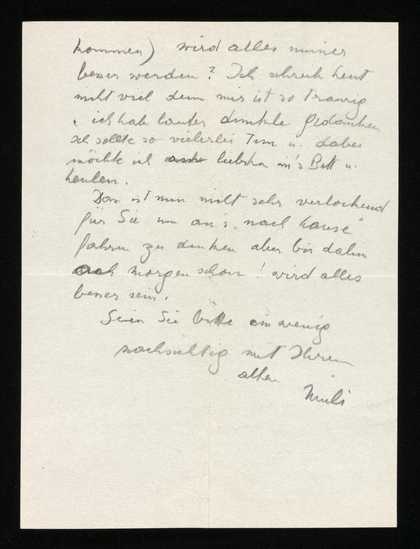 kommen) wird alles immer
besser werden? Ich schreib heut
nicht viel denn mir ist so traurig
u. ich hab lauter dunkle Gedanken
ich sollte so vielerlei tun u. dabei
möchte ich liebsten in's Bett u.
heulen.
Das ist nun nicht sehr verlockend
für Sie um an's "nach Hause"
fahren zu denken aber bis dahin
auch morgen schon! wird alles
besser sein.
Seien Sie bitte ein wenig
nachsichtig mit Ihrem
alten